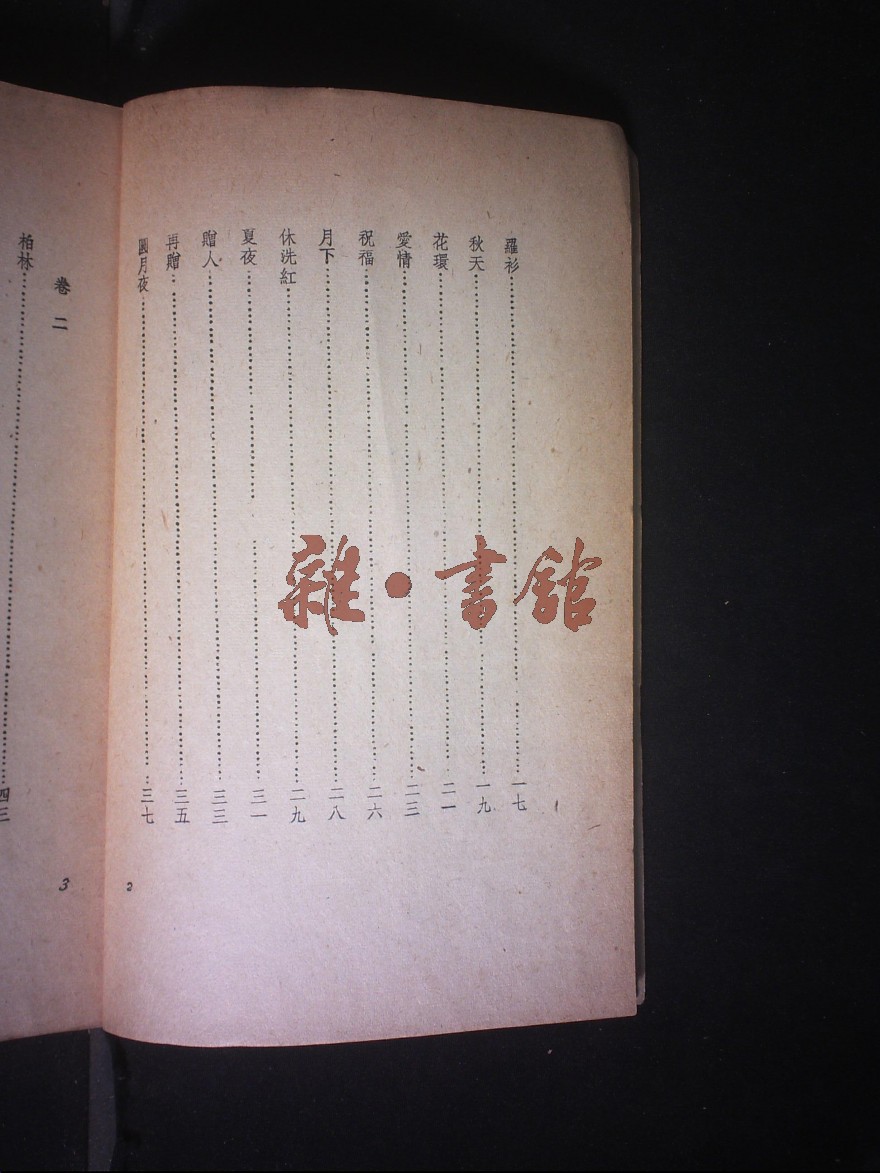 羅衫……一七
秋天……一九
花環……二一
愛情……二三
祝福……二六
月下……二八
休洗紅……二九
夏夜……三一
贈人……三三
再贈……三五
圓月夜……三七
2
卷二
柏林……四三
3
雜·書館